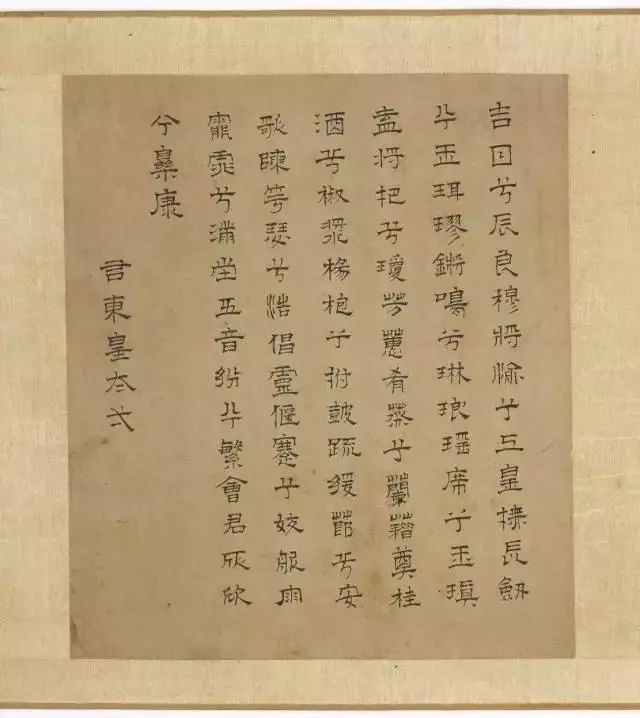 吉日兮辰良穆將愉兮上皇撫長劍
兮玉珥璆鏘鳴兮琳琅瑤席兮玉瑱
盍將把兮瓊芳蕙肴蒸兮蘭藉奠桂
酒兮椒漿揚枹兮拊鼓疏緩節兮安
歌陳竽瑟兮浩倡靈偃蹇兮姣服
霏霏兮滿堂五音紛兮繁會君欣欣
兮樂康
右東皇太弌